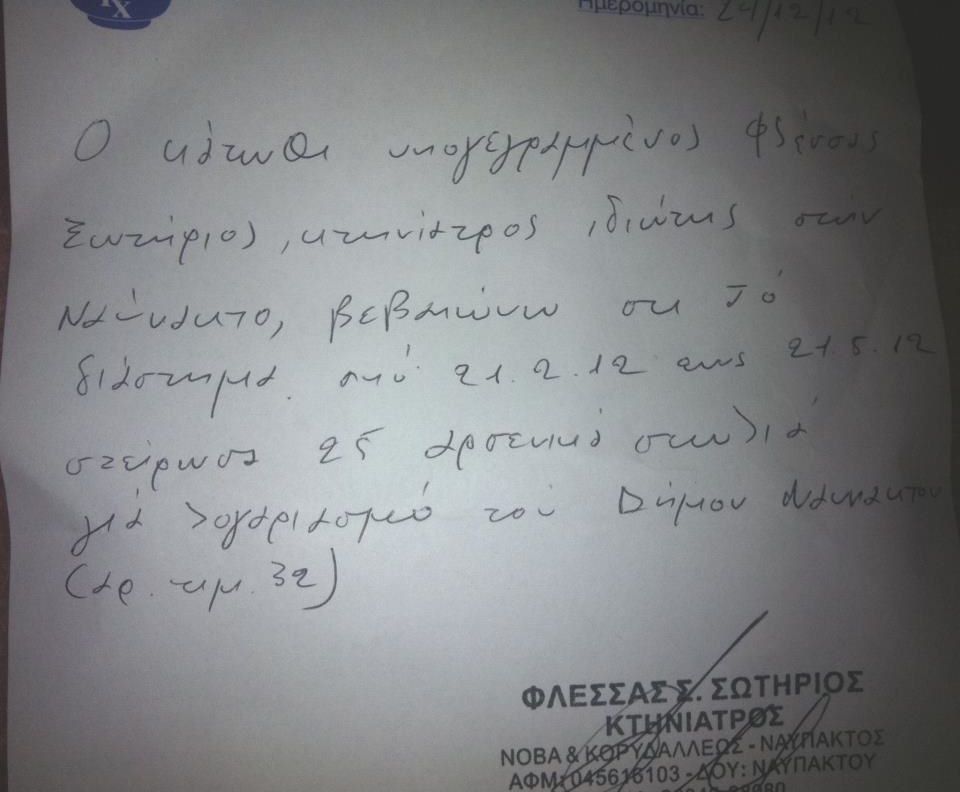 ΓΧ
Ημερομηνία: 24/12/12
Ο κάτωθι υπογεγραμμένος Φλέσσας
Σωτήριος, κτηνίατρος ιδιώτης στην
Ναύπακτο, βεβαιώνω οτι τό
διάστημα από 21.2.12 εως 21.5.12
στείρωσα 25 αρσενικά σκυλιά
γιά λογαριασμό τού Δήμου Ναυπάκτου
(αρ. τιμ. 32)
ΦΛΕΣΣΑΣ Σ. ΣΩΤΗΡΙΟΣ
ΚΤΗΝΙΑΤΡΟΣ
ΝΟΒΑ & ΚΟΡΥΔΑΛΛΕΩΣ - ΝΑΥΠΑΚΤΟΣ
ΑΦΜ: 045616103 - ΔΟΥ: ΝΑΥΠΑΚΤΟΥ